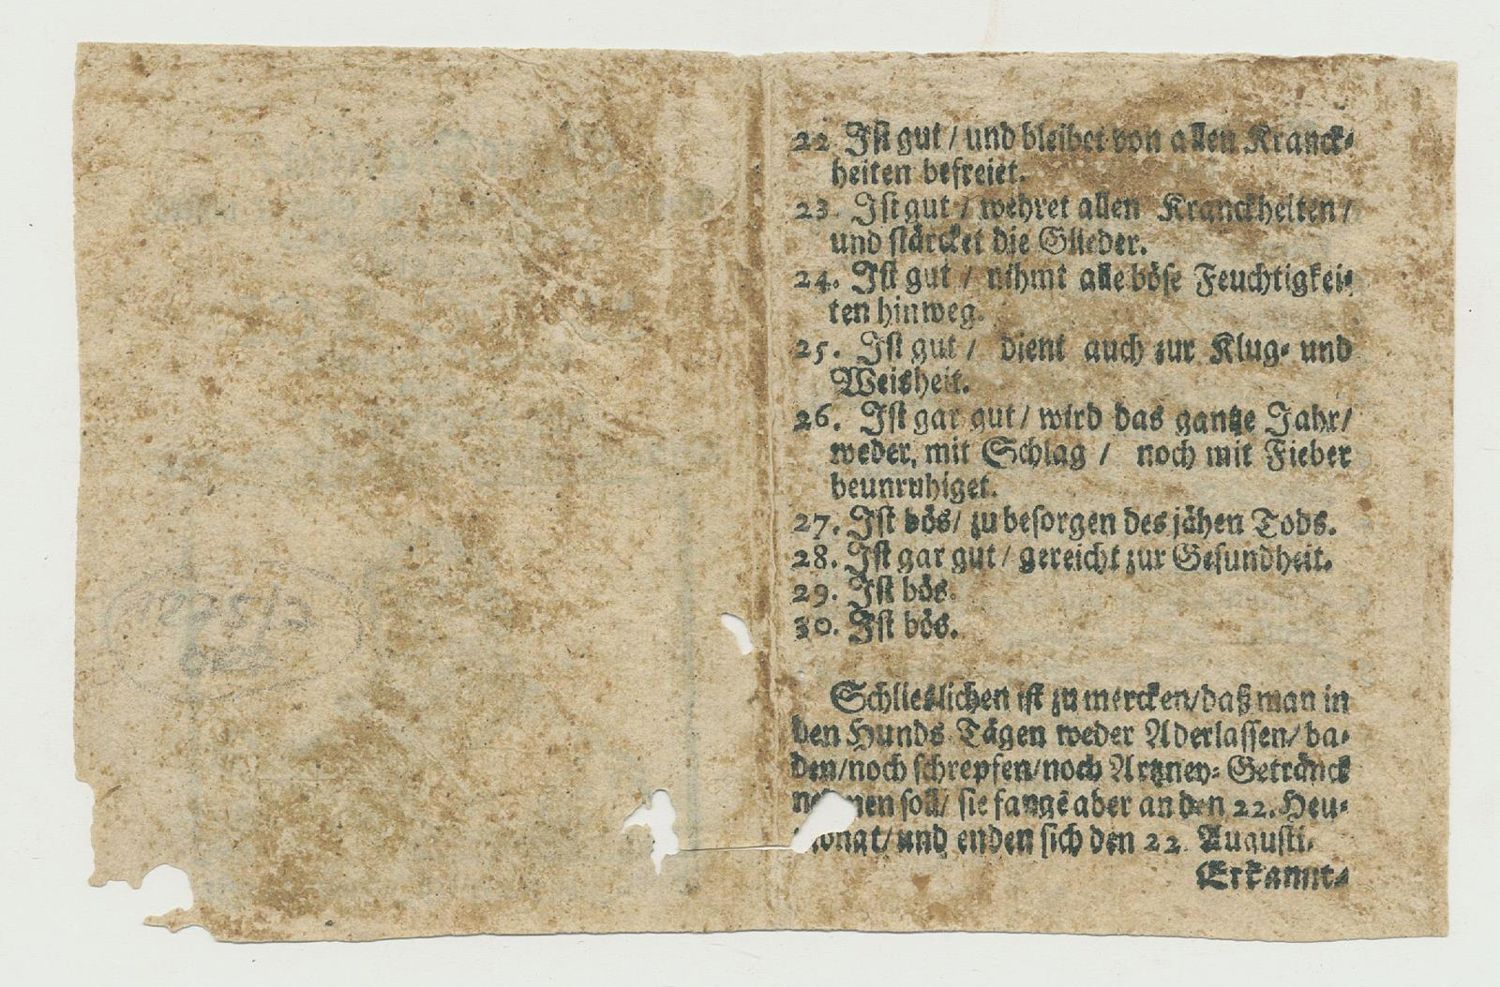 22 Ist gut / und bleibet von allen Kranck⸗
heiten befreiet.
23. Ist gut / wehret allen Kranckheiten /
und stärcket die Glieder.
24. Ist gut / nihmt alle böse Feuchtigkei⸗
ten hinweg.
25. Ist gut / dient auch zur Klug⸗ und
Weisheit.
26. Ist gar gut / wird das gantze Jahr /
weder, mit Schlag / noch mit Fieber
beunruhiget.
27. Ist bös / zu besorgen des jähen Tods.
28. Ist gar gut / gereicht zur Gesundheit.
29. Ist bös.
30. Ist bös.
Schlieslichen ist zu mercken / daß man in
den Hunds Tägen weder Aderlassen / ba⸗
den / noch schrepfen / noch Artzney⸗ Getränck
soll / sie fangē aber an den 22. Heu⸗
und enden sich den 22 Augusti.
Erkannt⸗